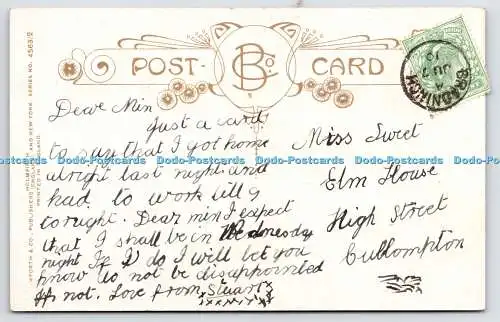 POST CARD
B Co.
BRADNINCH
A
JU 7
10
Dear Min
Just a card
to say that I got home
alright last night and
had to work till 9
tonight. Dear min I expect
that I shall be in Wednesday
night If I do I will let you
know so not be disappointed
if not. Love from Stuart
xxxxxx
Miss Sweet
Elm House
High Street
Cullompton
BAMFORTH & CO., PUBLISHERS, HOLMFIRTH (ENGLAND) AND NEW YORK. SERIES NO. 4563/2
PRINTED IN ENGLAND.
Dodo-Postcards Dodo-Postcards Dodo-Postcards Dodo-Postcards Dodo-Postcards Dodo-Postcards